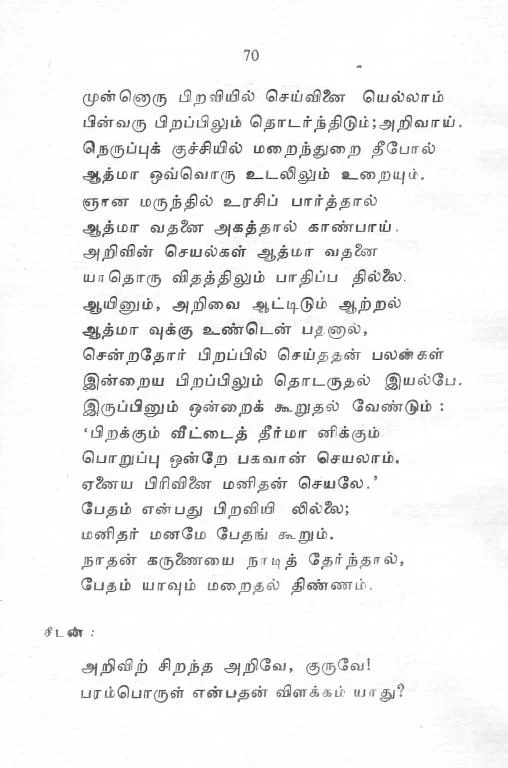 70
முன்னொரு பிறவியில் செய்வினை யெல்லாம்
பின்வரு பிறப்பிலும் தொடர்ந்திடும்;அறிவாய்.
நெருப்புக் குச்சியில் மறைந்துறை தீபோல்
ஆத்மா ஒவ்வொரு உடலிலும் உறையும்.
ஞான மருந்தில் உரசிப் பார்த்தால்
ஆத்மா வதனை அகத்தால் காண்பாய்.
அறிவின் செயல்கள் ஆத்மா வதனை
யாதொரு விதத்திலும் பாதிப்ப தில்லை.
ஆயினும், அறிவை ஆட்டிடும் ஆற்றல்
ஆத்மா வுக்கு உண்டென் பதனால்,
சென்றதோர் பிறப்பில் செய்ததன் பலன்கள்
இன்றைய பிறப்பிலும் தொடருதல் இயல்பே.
இருப்பினும் ஒன்றைக் கூறுதல் வேண்டும் :
‘பிறக்கும் வீட்டைத் தீர்மா னிக்கும்
பொறுப்பு ஒன்றே பகவான் செயலாம்.
ஏனைய பிரிவினை மனிதன் செயலே.’
பேதம் என்பது பிறவியி லில்லை;
மனிதர் மனமே பேதங் கூறும்.
நாதன் கருணையை நாடித் தேர்ந்தால்,
பேதம் யாவும் மறைதல் திண்ணம்.
சீடன் :
அறிவிற் சிறந்த அறிவே, குருவே!
பரம்பொருள் என்பதன் விளக்கம் யாது?